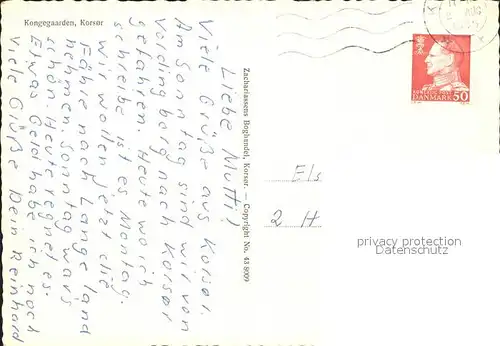 Kongegaarden, Korsør
Liebe Mutti!
Viele Grüße aus Korsør.
Am Sonntag sind wir von
Vordingborg nach Korsør
gefahren. Heute wo ich
schreibe ist es Montag.
Wir wollen jetzt die
Fähre nach Langeland
nehmen. Sonntag war's
schön. Heute regnet es.
Etwas Geld habe ich noch
Viele Grüße Dein Reinhard
Zachariassens Boghandel, Korsør. — Copyright No. 43 8009
DANMARK 50
Els
2 H
privacy protection
Datenschutz